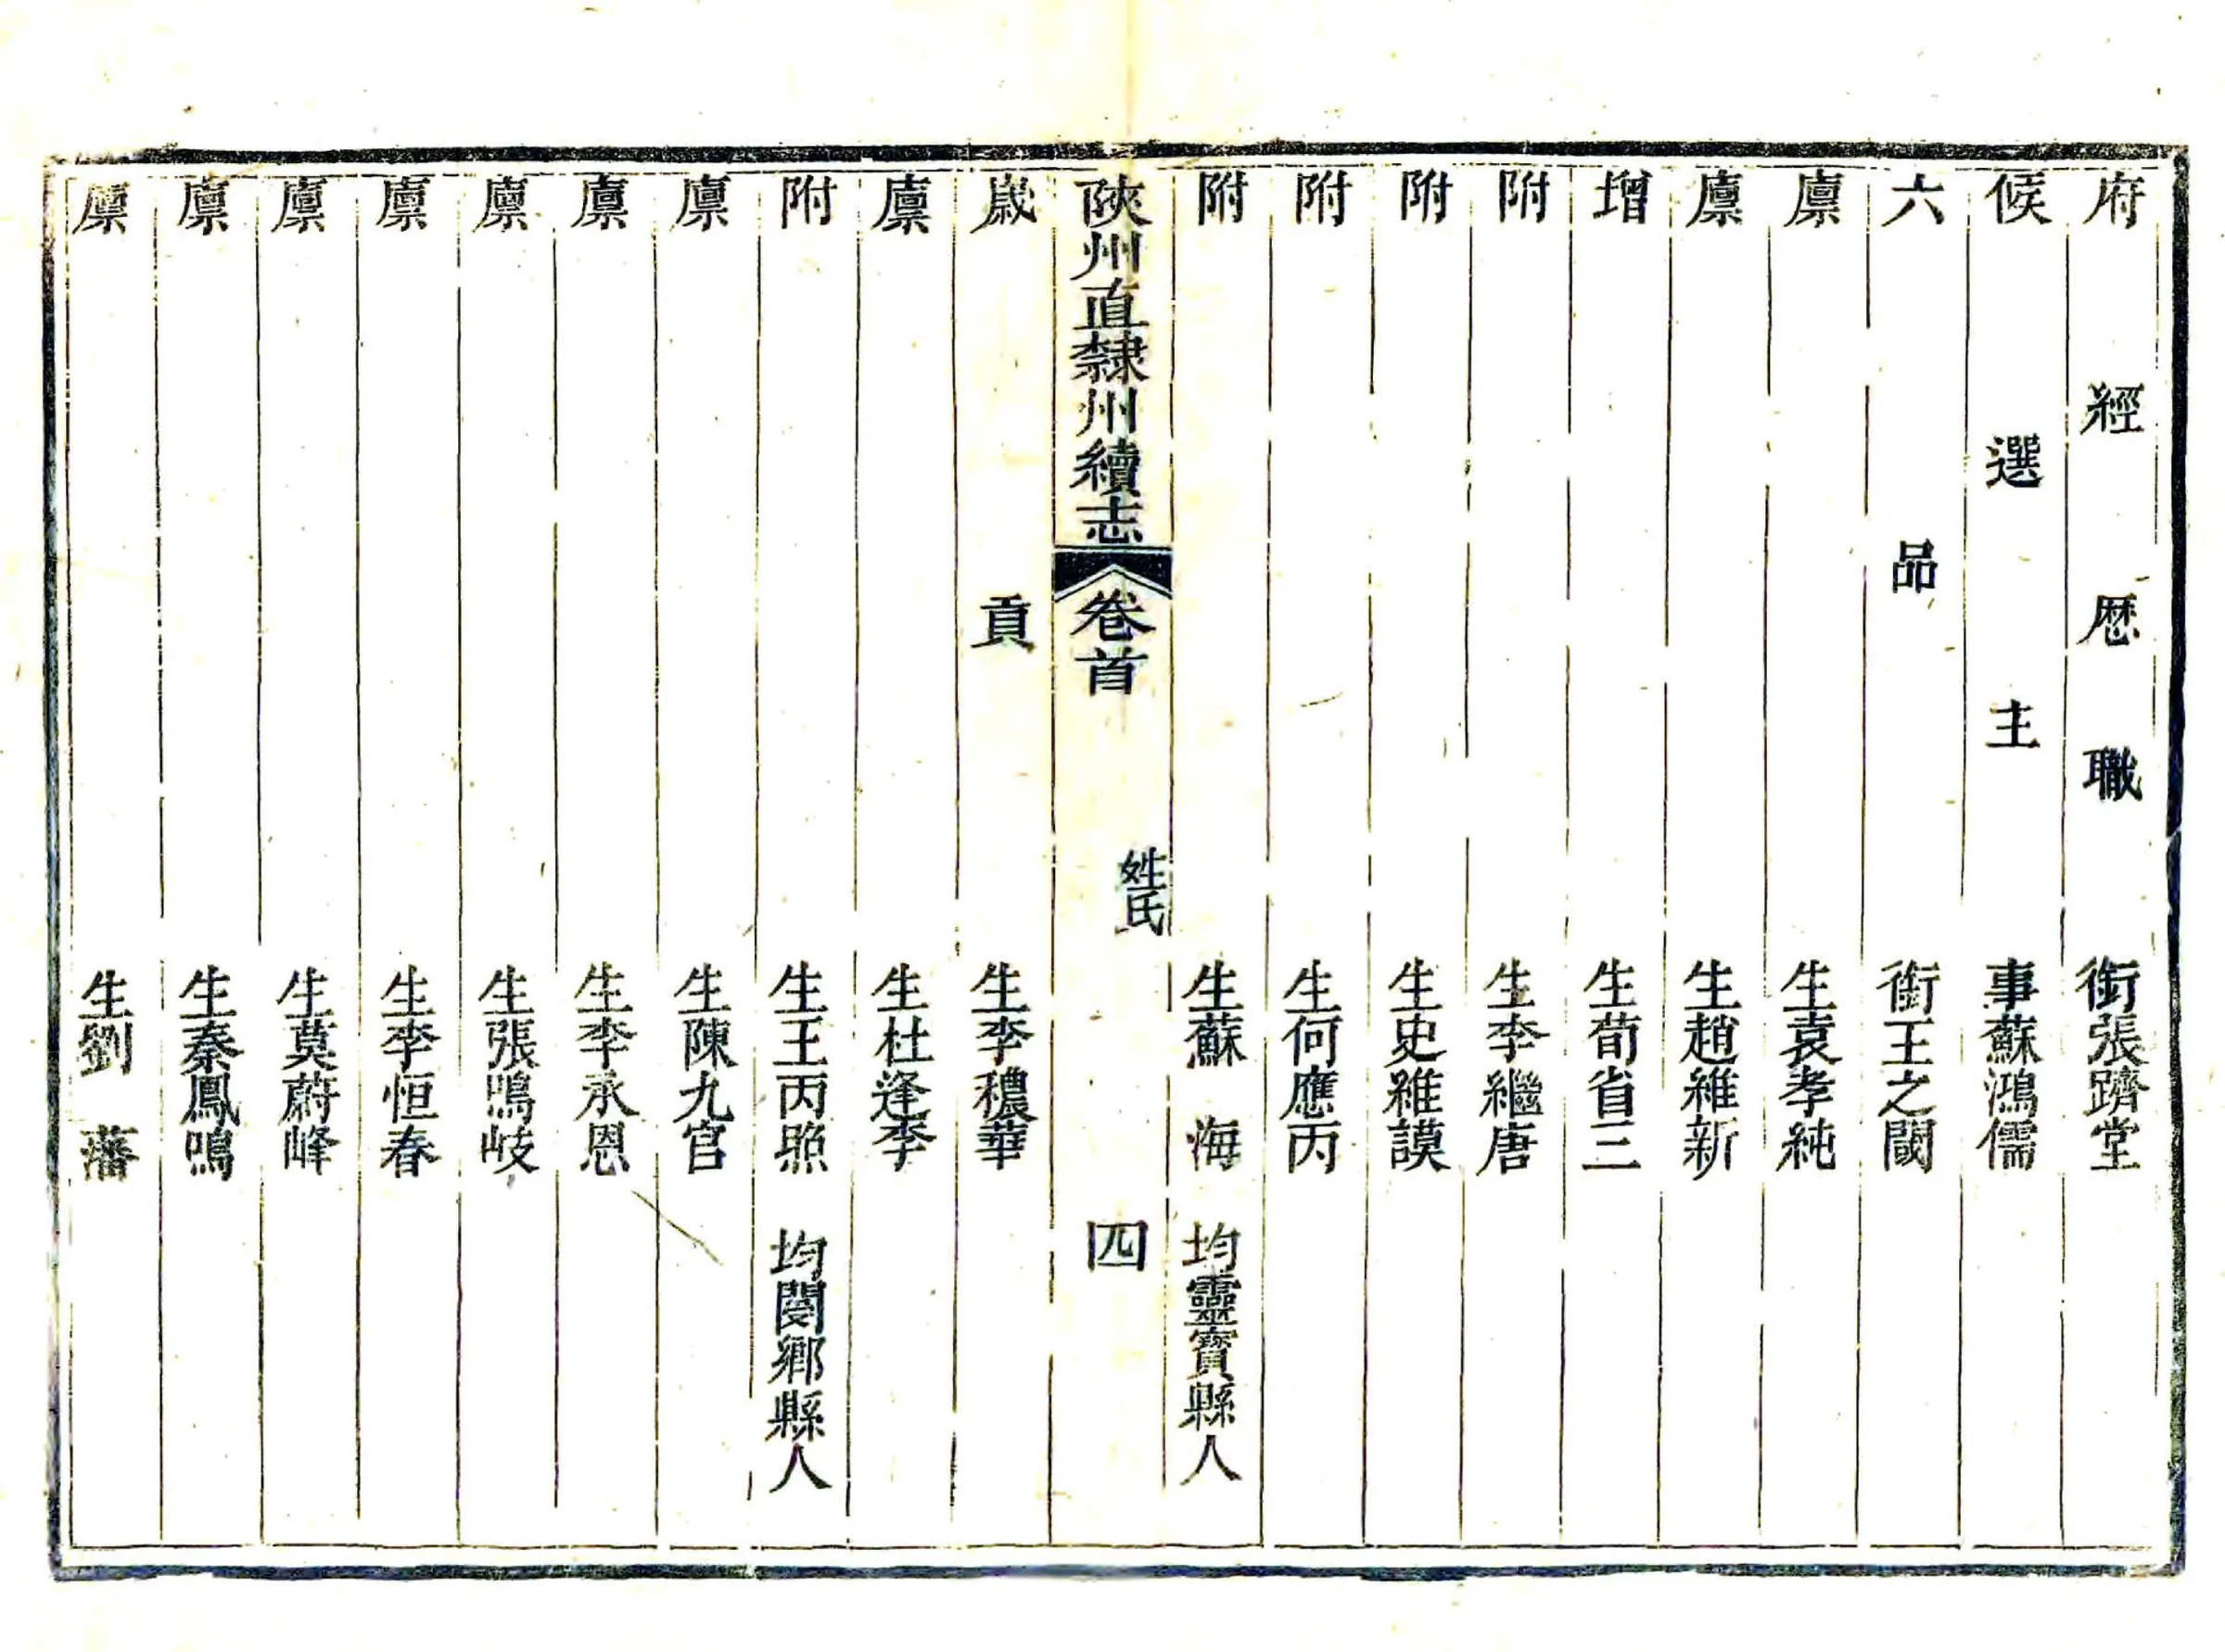 府經歷職銜張躋堂
候選主事蘇鴻儒
六品銜王之閾
廩生袁孝純
廩生趙維新
增生荀省三
附生李繼唐
附生史維謨
附生何應丙
附生蘇海 均靈寶縣人
陝州直隸州續志 卷首 姓氏 四
歲貢生李穠華
廩生杜逢李
附生王丙照 均閿鄉縣人
廩生陳九官
廩生李承恩
廩生張鳴岐
廩生李恒春
廩生莫蔚峰
廩生秦鳳鳴
廩生劉藩